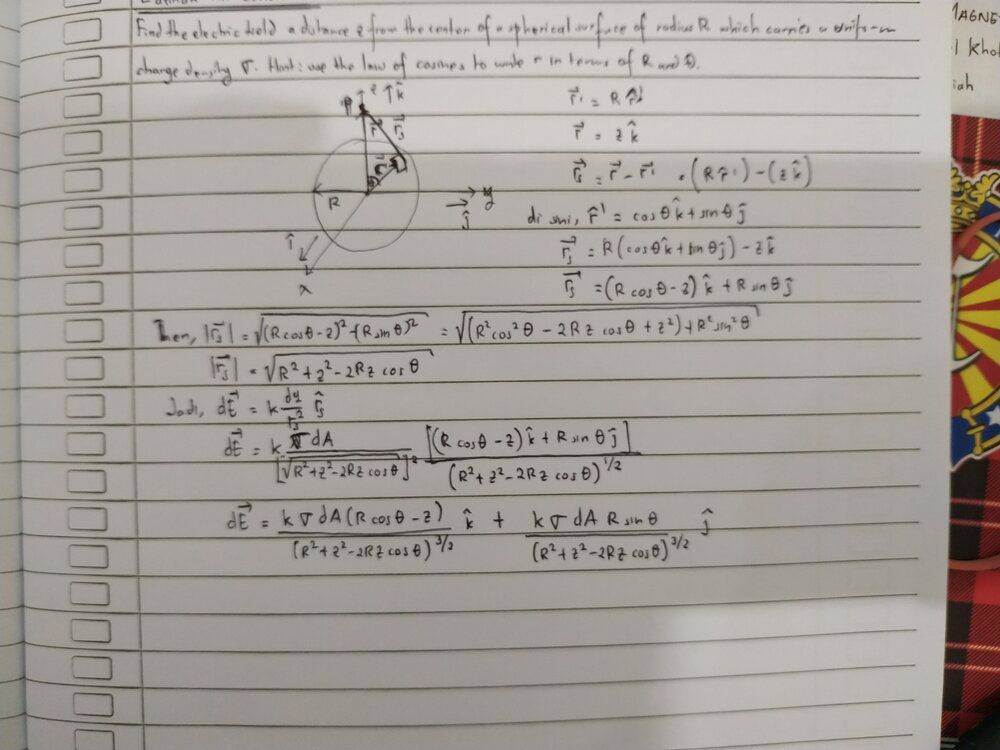 Find the electric field a distance z from the center of a spherical surface of radius R which carries a uniform
charge density σ. Hint: use the law of cosines to write r in terms of R and θ.
z ↑ k̂
P
r⃗ r⃗s
θ
R
y
ĵ
î
x
r⃗' = R r̂'
r⃗ = z k̂
r⃗s = r⃗ - r⃗' = (R r̂') - (z k̂)
di sini, r̂' = cos θ k̂ + sin θ ĵ
r⃗s = R(cos θ k̂ + sin θ ĵ) - z k̂
r⃗s = (R cos θ - z) k̂ + R sin θ ĵ
Then, |r⃗s| = √((R cos θ - z)² + (R sin θ)²) = √((R² cos² θ - 2Rz cos θ + z²) + R² sin² θ)
|r⃗s| = √(R² + z² - 2Rz cos θ)
Jadi, dE⃗ = k dq/rs² r̂s
dE⃗ = k σ dA / [√(R² + z² - 2Rz cos θ)]² [(R cos θ - z) k̂ + R sin θ ĵ] / (R² + z² - 2Rz cos θ)^1/2
dE⃗ = k σ dA (R cos θ - z) / (R² + z² - 2Rz cos θ)^3/2 k̂ + k σ dA R sin θ / (R² + z² - 2Rz cos θ)^3/2 ĵ
MAGNE